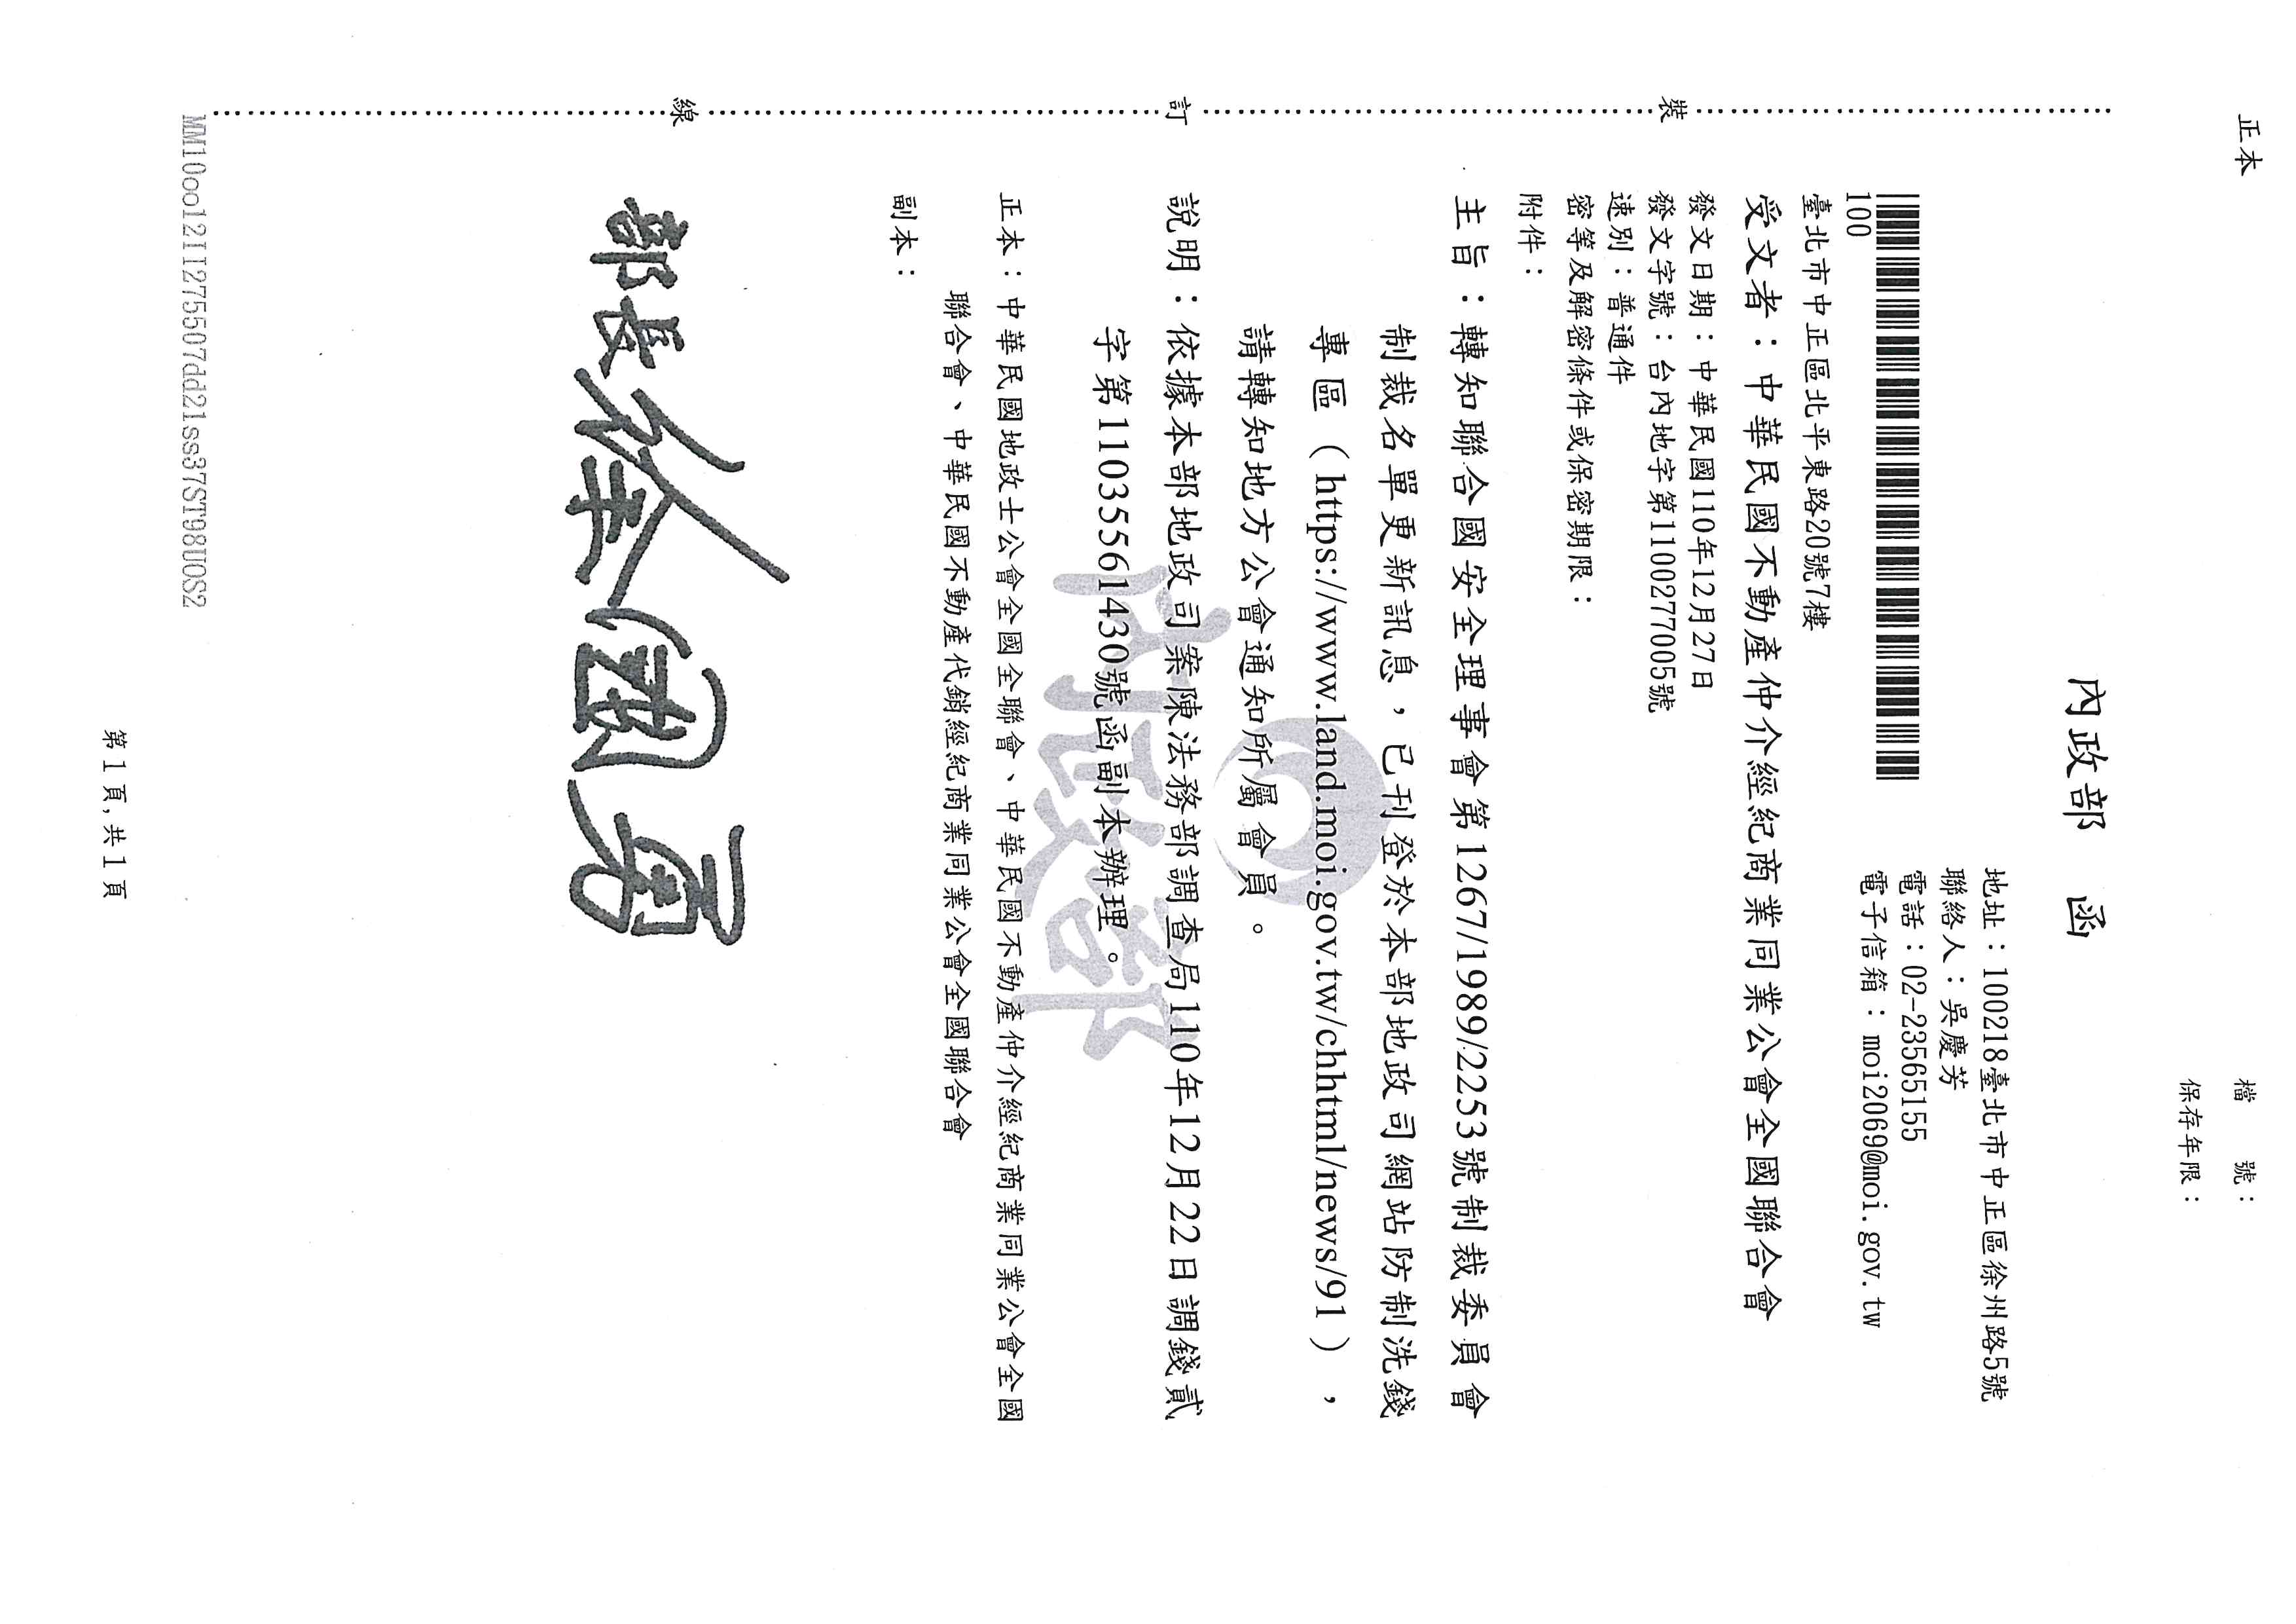 正本
檔　　號：
保存年限：
內政部　函
地址：100218臺北市中正區徐州路5號
聯絡人：吳慶芳
電話：02-23565155
電子信箱：moi2069@moi.gov.tw
100
臺北市中正區北平東路20號7樓
受文者：中華民國不動產仲介經紀商業同業公會全國聯合會
發文日期：中華民國110年12月27日
發文字號：台內地字第1100277005號
速別：普通件
密等及解密條件或保密期限：
附件：
主旨：轉知聯合國安全理事會第1267/1989/2253號制裁委員會
制裁名單更新訊息，已刊登於本部地政司網站防制洗錢
專區（https://www.land.moi.gov.tw/chhtml/news/91），
請轉知地方公會通知所屬會員。
說明：依據本部地政司案陳法務部調查局110年12月22日調錢貳
字第11035561430號函副本辦理。
正本：中華民國地政士公會全國全聯會、中華民國不動產仲介經紀商業同業公會全國
聯合會、中華民國不動產代銷經紀商業同業公會全國聯合會
副本：
部長徐國勇
裝
訂
線
內政部
MM10ool2II275507dd21ss37ST98UOS2
第1頁,共1頁